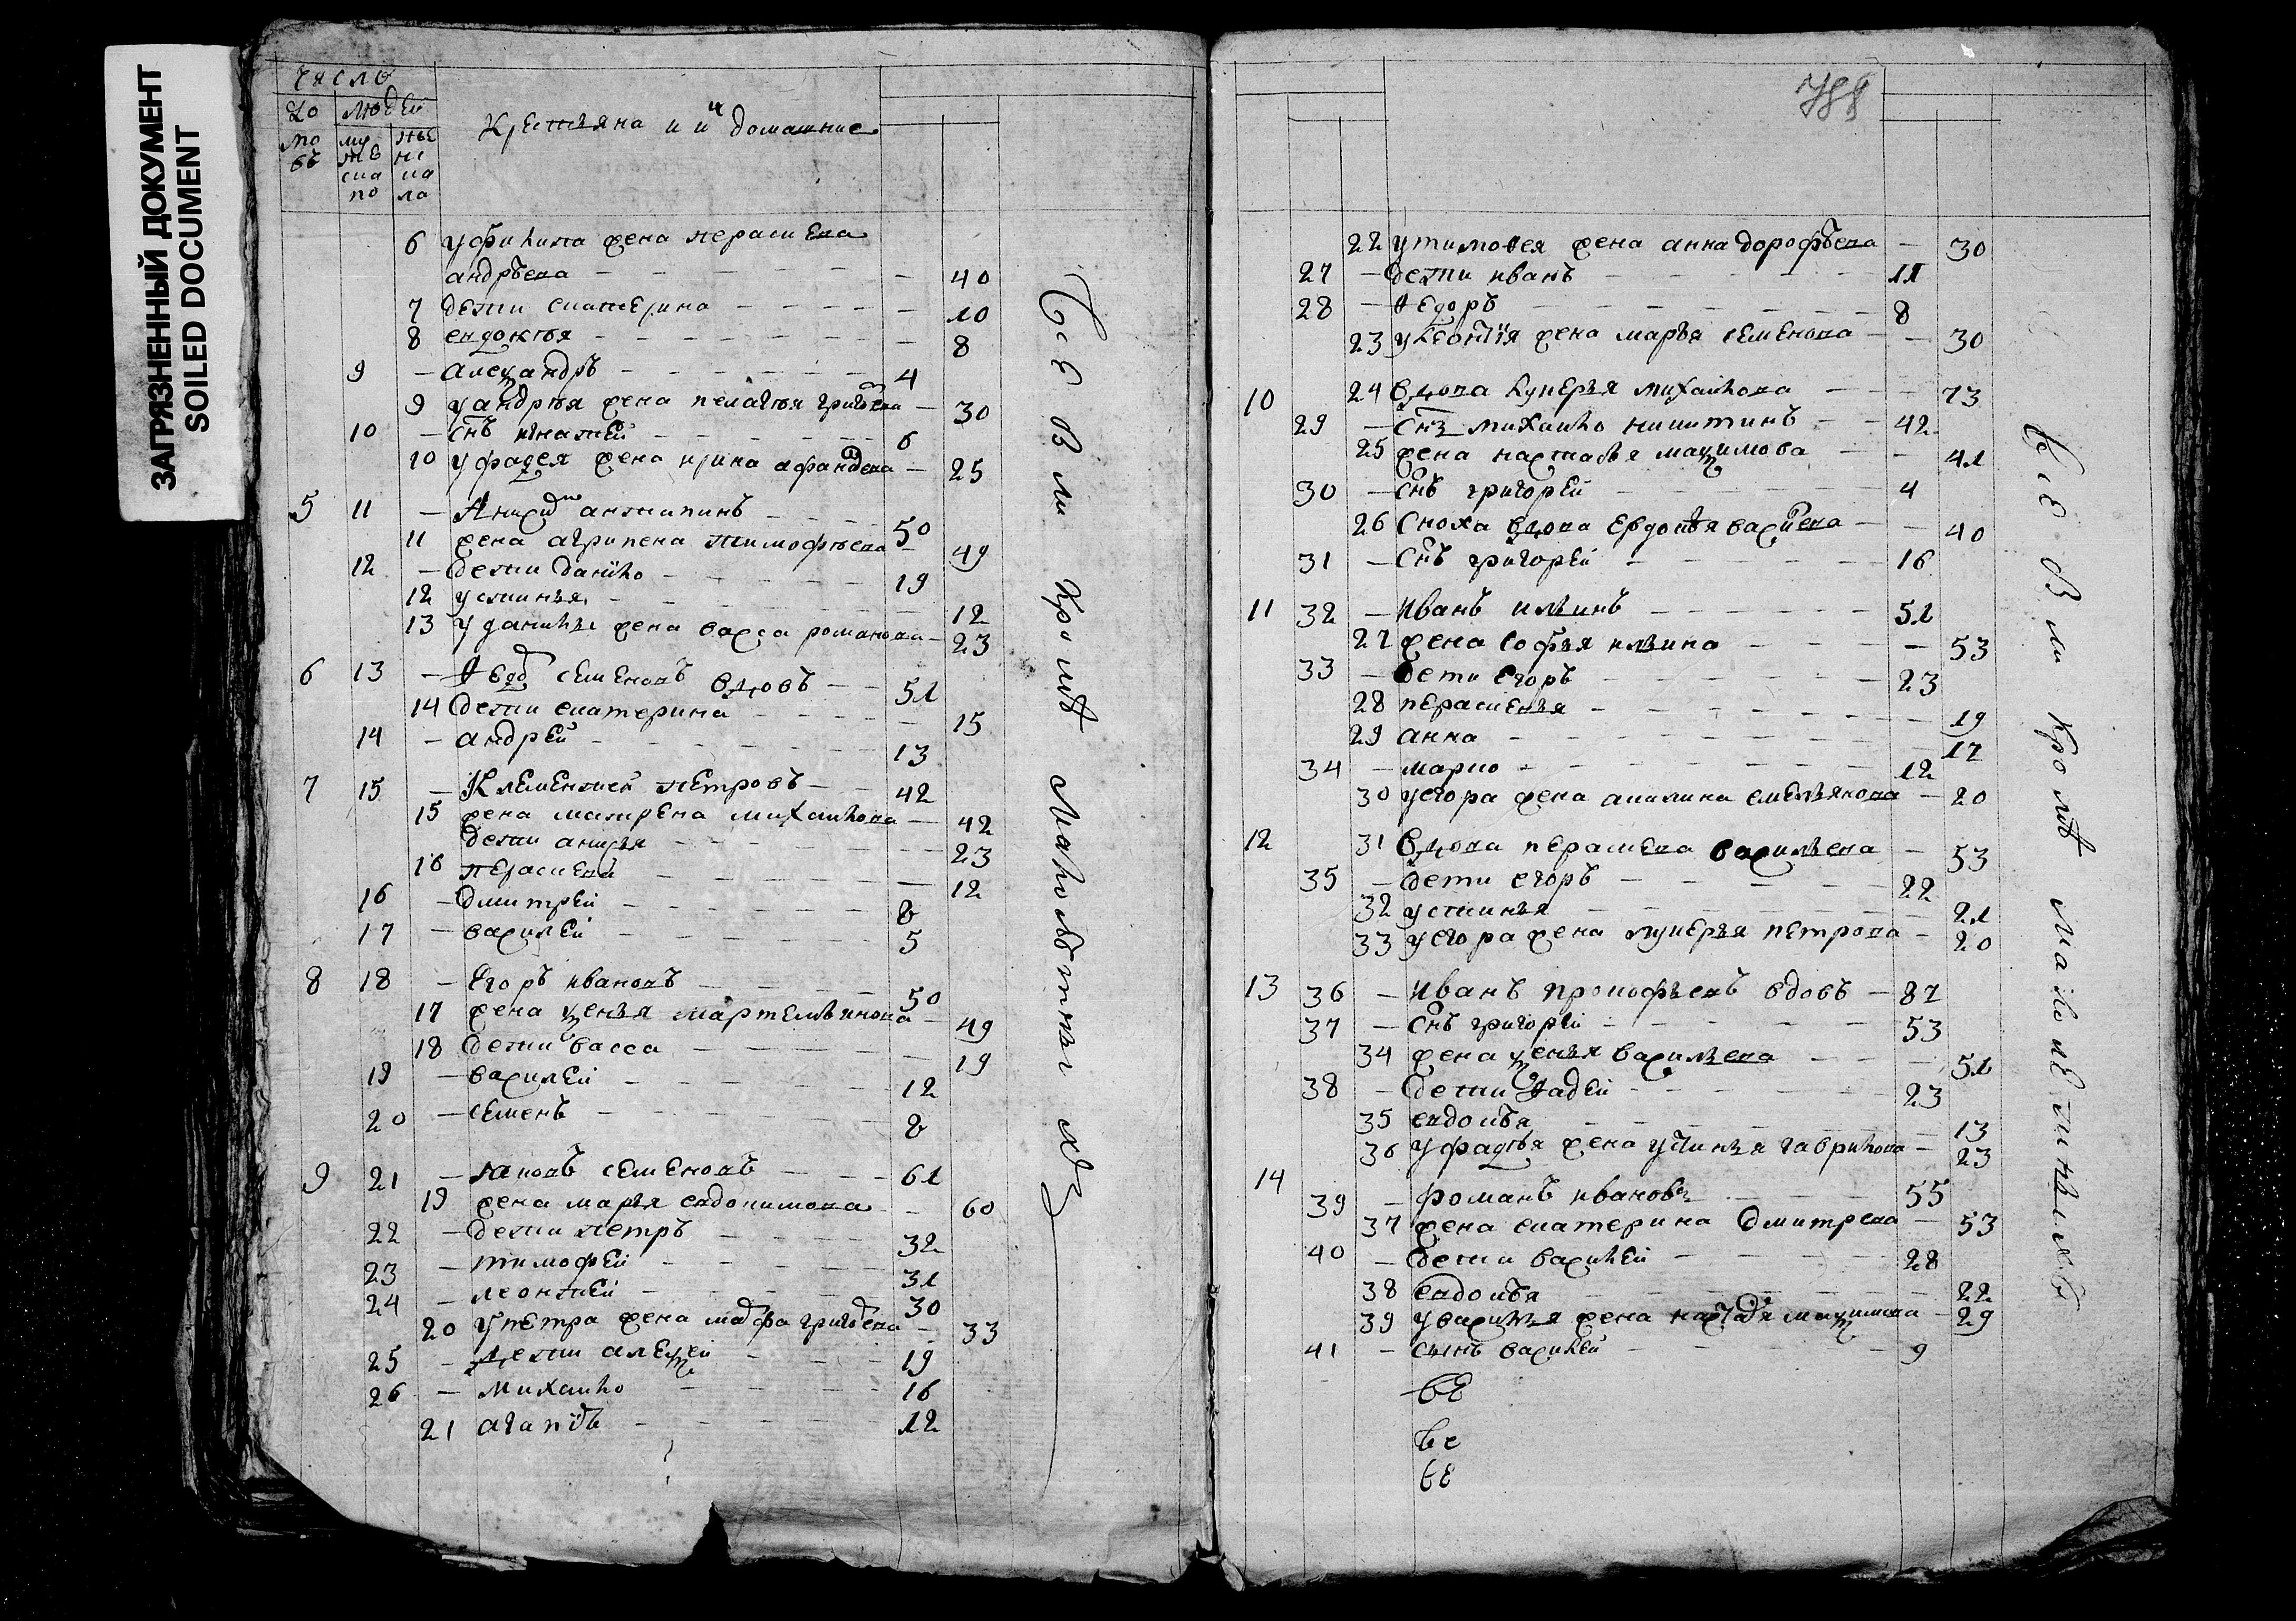 ЗАГРЯЗНЕННЫЙ ДОКУМЕНТ
SOILED DOCUMENT
число
дво людей
ро муже жѣ
въ ска нс
по ка
ла
Крестьяна и ихъ домашние
6 у филипа жена перасцева
андрѣева — 40
7 дети екатерина — 10
8 евдокѣя — 8
9 — александръ — 4
9 у андрѣя жена пелагѣя григорьева — 30
10 — снъ игнатей — 6
10 у фадея жена ирина афанасьева — 25
5 11 — антипинъ — 50
11 жена агрипена тимофѣева — 49
12 — дети данило — 19
12 устинья — 12
13 у данилы жена васса романова — 23
6 13 — Ѳедоръ семеновъ вдовъ — 51
14 дети екатерина — 15
14 — андрей — 13
7 15 — Клементей петровъ — 42
15 жена матрена михаилова — 42
дети анисья — 23
16 перасцева — 12
16 — дмитрей — 8
17 — василей — 5
8 18 — Егоръ ивановъ — 50
17 жена ксенья мартемьянова — 49
18 дети васса — 19
19 — василей — 12
20 — семенъ — 8
9 21 — яковъ семеновъ — 61
19 жена марья евдокимова — 60
22 — дети петръ — 32
23 — тимофей — 31
24 — леонтей — 30
20 у петра жена марфа григорьева — 33
25 — дети алексей — 19
26 — михаило — 16
21 — 12
Все въ ли кромѣ малолѣтныхъ
22 у тимофея жена анна дорофѣева — 30
27 — дети иванъ — 11
28 — Ѳедоръ — 8
23 у леонтия жена марья семенова — 30
10 24 вдова лукерья михаилова — 73
29 — снъ михаило никитинъ — 42
25 жена настасья максимова — 41
30 — снъ григорей — 4
26 сноха вдова евдокѣя васильева — 40
31 — снъ григорей — 16
11 32 — иванъ ильинъ — 51
27 жена софья ильина — 53
33 — дети егоръ — 23
28 — 19
29 анна — 17
34 — марко — 12
30 у егора жена акилина емельянова — 20
12 31 вдова перасцева васильева — 53
35 — дети егоръ — 22
32 устинья — 21
33 у егора жена лукерья петрова — 20
13 36 — иванъ прокофьевъ вдовъ — 87
37 — снъ григорей — 53
34 жена ксенья васильева — 51
38 — дети Ѳадей — 23
35 евдокѣя — 13
36 у фадѣя жена устинья гаврилова — 23
14 39 — романъ ивановъ — 55
37 жена екатерина дмитрева — 53
40 — дети василей — 28
38 евдокѣя — 22
39 у василья жена настасья максимова — 29
41 — сынъ василей — 9
ве
ве
ве
все въ ли кромѣ малолетныхъ